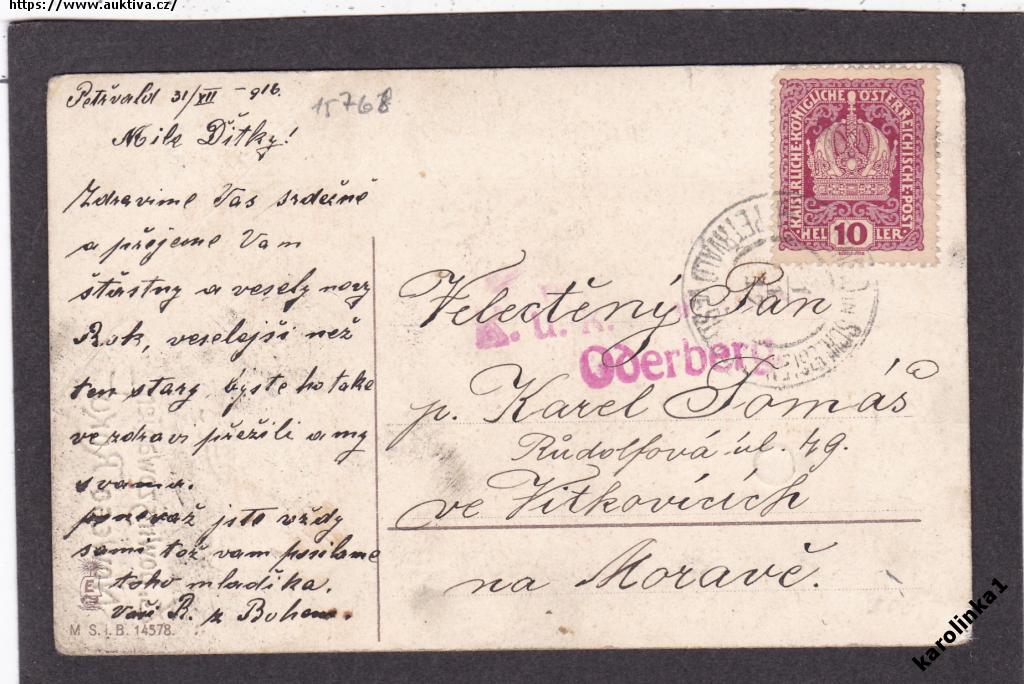 https://www.auktiva.cz/
Petřvald 31/XII - 916.
15768
Milé Dítky!
Zdravime Vas srdečně
a přejeme Vam
štastny a vesely novy
Rok, veselejši než
ten stary, byste ho take
ve zdravi přežili a my
s vama.
ponevaž jste vždy
sami tož vam posilame
toho mladika.
Vaši R. z Bohem.
M S.i.B. 14578.
KAISERLICHE KÖNIGLICHE ÖSTERREICHISCHE POST
HELLER
10
PETERWALD
SCHLESIEN
K. u. k.
Oderberg
Velectěný Pan
p. Karel Tomáš
Růdolfová úl. 49.
ve Vitkovicích
na Moravě.
karolinka1